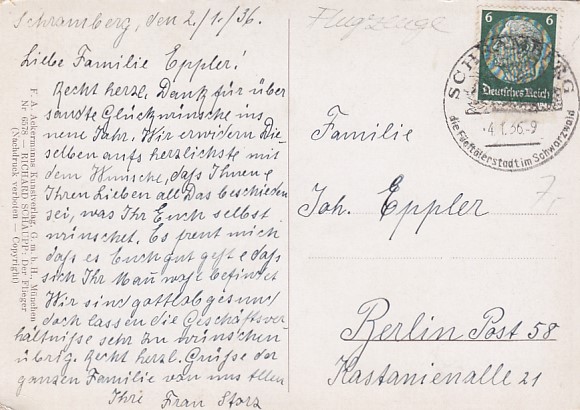 Schramberg, den 2./1./36.
Flugzeuge
Liebe Familie Eppler!
Recht herzl. Dank für über
sandte Glückwünsche ins
neue Jahr. Wir erwidern Die
selben aufs herzlichste mit
dem Wunsche, dass Ihnen &
Ihren Lieben all Das beschieden
sei, was Ihr Euch selbst
wünschet. Es freut mich
dass es Euch gut geht & dass
sich Ihr Mann befindet
Wir sind gottlob gesund
doch lassen die Geschäftsver
hältnisse sehr zu wünschen
übrig. Recht herzl. Grüsse der
ganzen Familie von uns Allen
Ihre Frau Storz
F. A. Ackermanns Kunstverlag, G. m. b. H., München
Nr. 6578 — RICHARD SCHAUPP: Der Flieger
(Nachdruck verboten — Copyright)
6 6
Deutsches Reich
SCHRAMBERG
4.1.36-9
die Fünftälerstadt im Schwarzwald
Familie
Joh. Eppler
Berlin Post 58
Kastanienalle 21